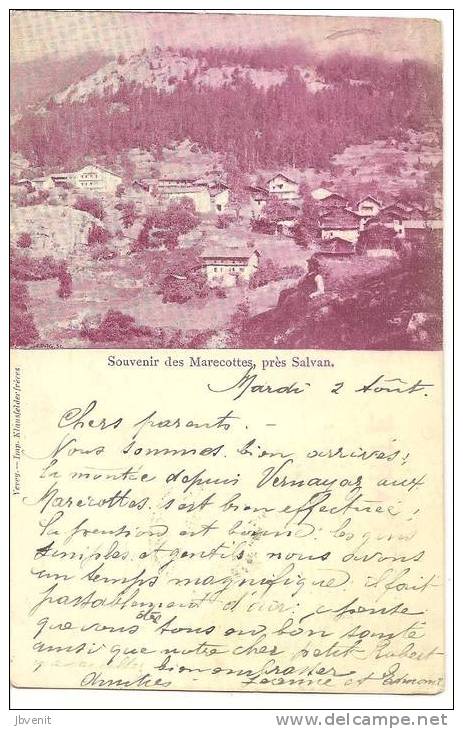 Souvenir des Marecottes, près Salvan.
Vevey.—Imp. Klausfelder frères
Mardi 2 Août.
Chers parents. -
Nous sommes bien arrivés;
la montée depuis Vernayaz aux
Marécottes s'est bien effectuée;
la pension est bonne les gens
simples et gentils nous avons
un temps magnifique il fait
d'air;
que vous tous en bon santé
ainsi que notre cher petit Robert
bien embrasser
Amitiés - Jeanne et Edmond
jbvenit
http://www.delcampe.net